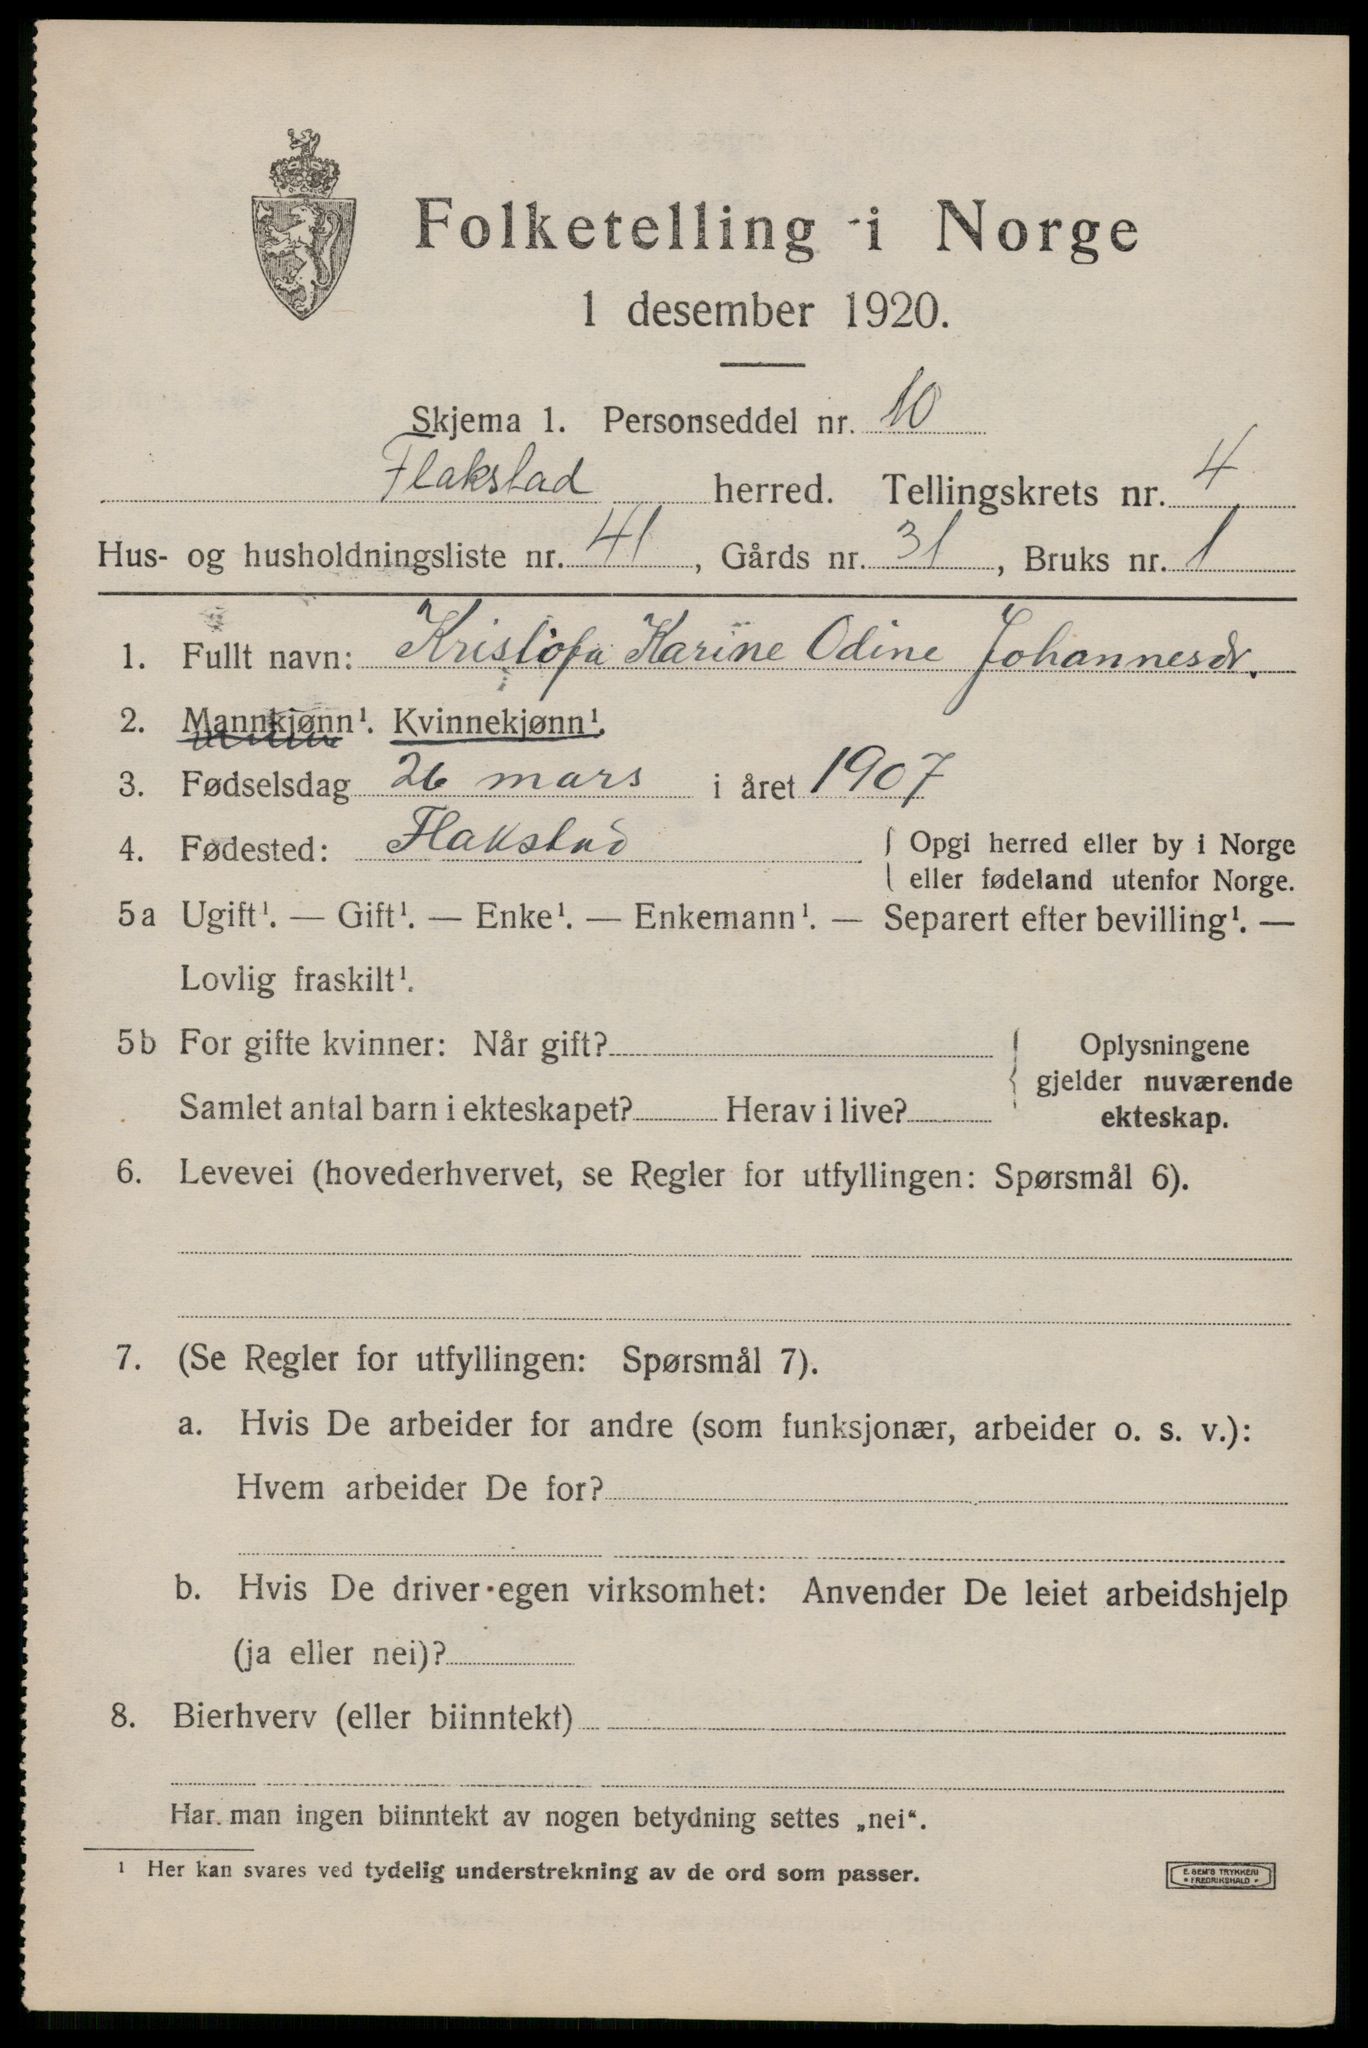 Folketelling i Norge
1 desember 1920.
Skjema 1. Personseddel nr. 10
Flakstad herred. Tellingskrets nr. 4
Hus- og husholdningsliste nr. 41, Gårds nr. 31, Bruks nr. 1
1. Fullt navn: Kristofa Karine Odine Johannesdr.
2. Mannkjønn¹. Kvinnekjønn¹.
3. Fødselsdag 26 mars i året 1907
4. Fødested: Flakstad { Opgi herred eller by i Norge
eller fødeland utenfor Norge.
5a Ugift¹. — Gift¹. — Enke¹. — Enkemann¹. — Separert efter bevilling¹. —
Lovlig fraskilt¹.
5b For gifte kvinner: Når gift? { Oplysningene
gjelder nuværende
Samlet antal barn i ekteskapet? Herav i live? ekteskap.
6. Levevei (hovederhvervet, se Regler for utfyllingen: Spørsmål 6).
7. (Se Regler for utfyllingen: Spørsmål 7).
a. Hvis De arbeider for andre (som funksjonær, arbeider o. s. v.):
Hvem arbeider De for?
b. Hvis De driver egen virksomhet: Anvender De leiet arbeidshjelp
(ja eller nei)?
8. Bierhverv (eller biinntekt)
Har man ingen biinntekt av nogen betydning settes „nei“.
¹ Her kan svares ved tydelig understrekning av de ord som passer.
E. SEM'S TRYKKERI
FREDRIKSHALD